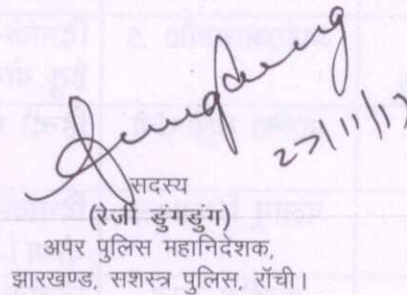 27/11/17
सदस्य
(रेजी डुंगडुंग)
अपर पुलिस महानिदेशक,
झारखण्ड, सशस्त्र पुलिस, रॉची।